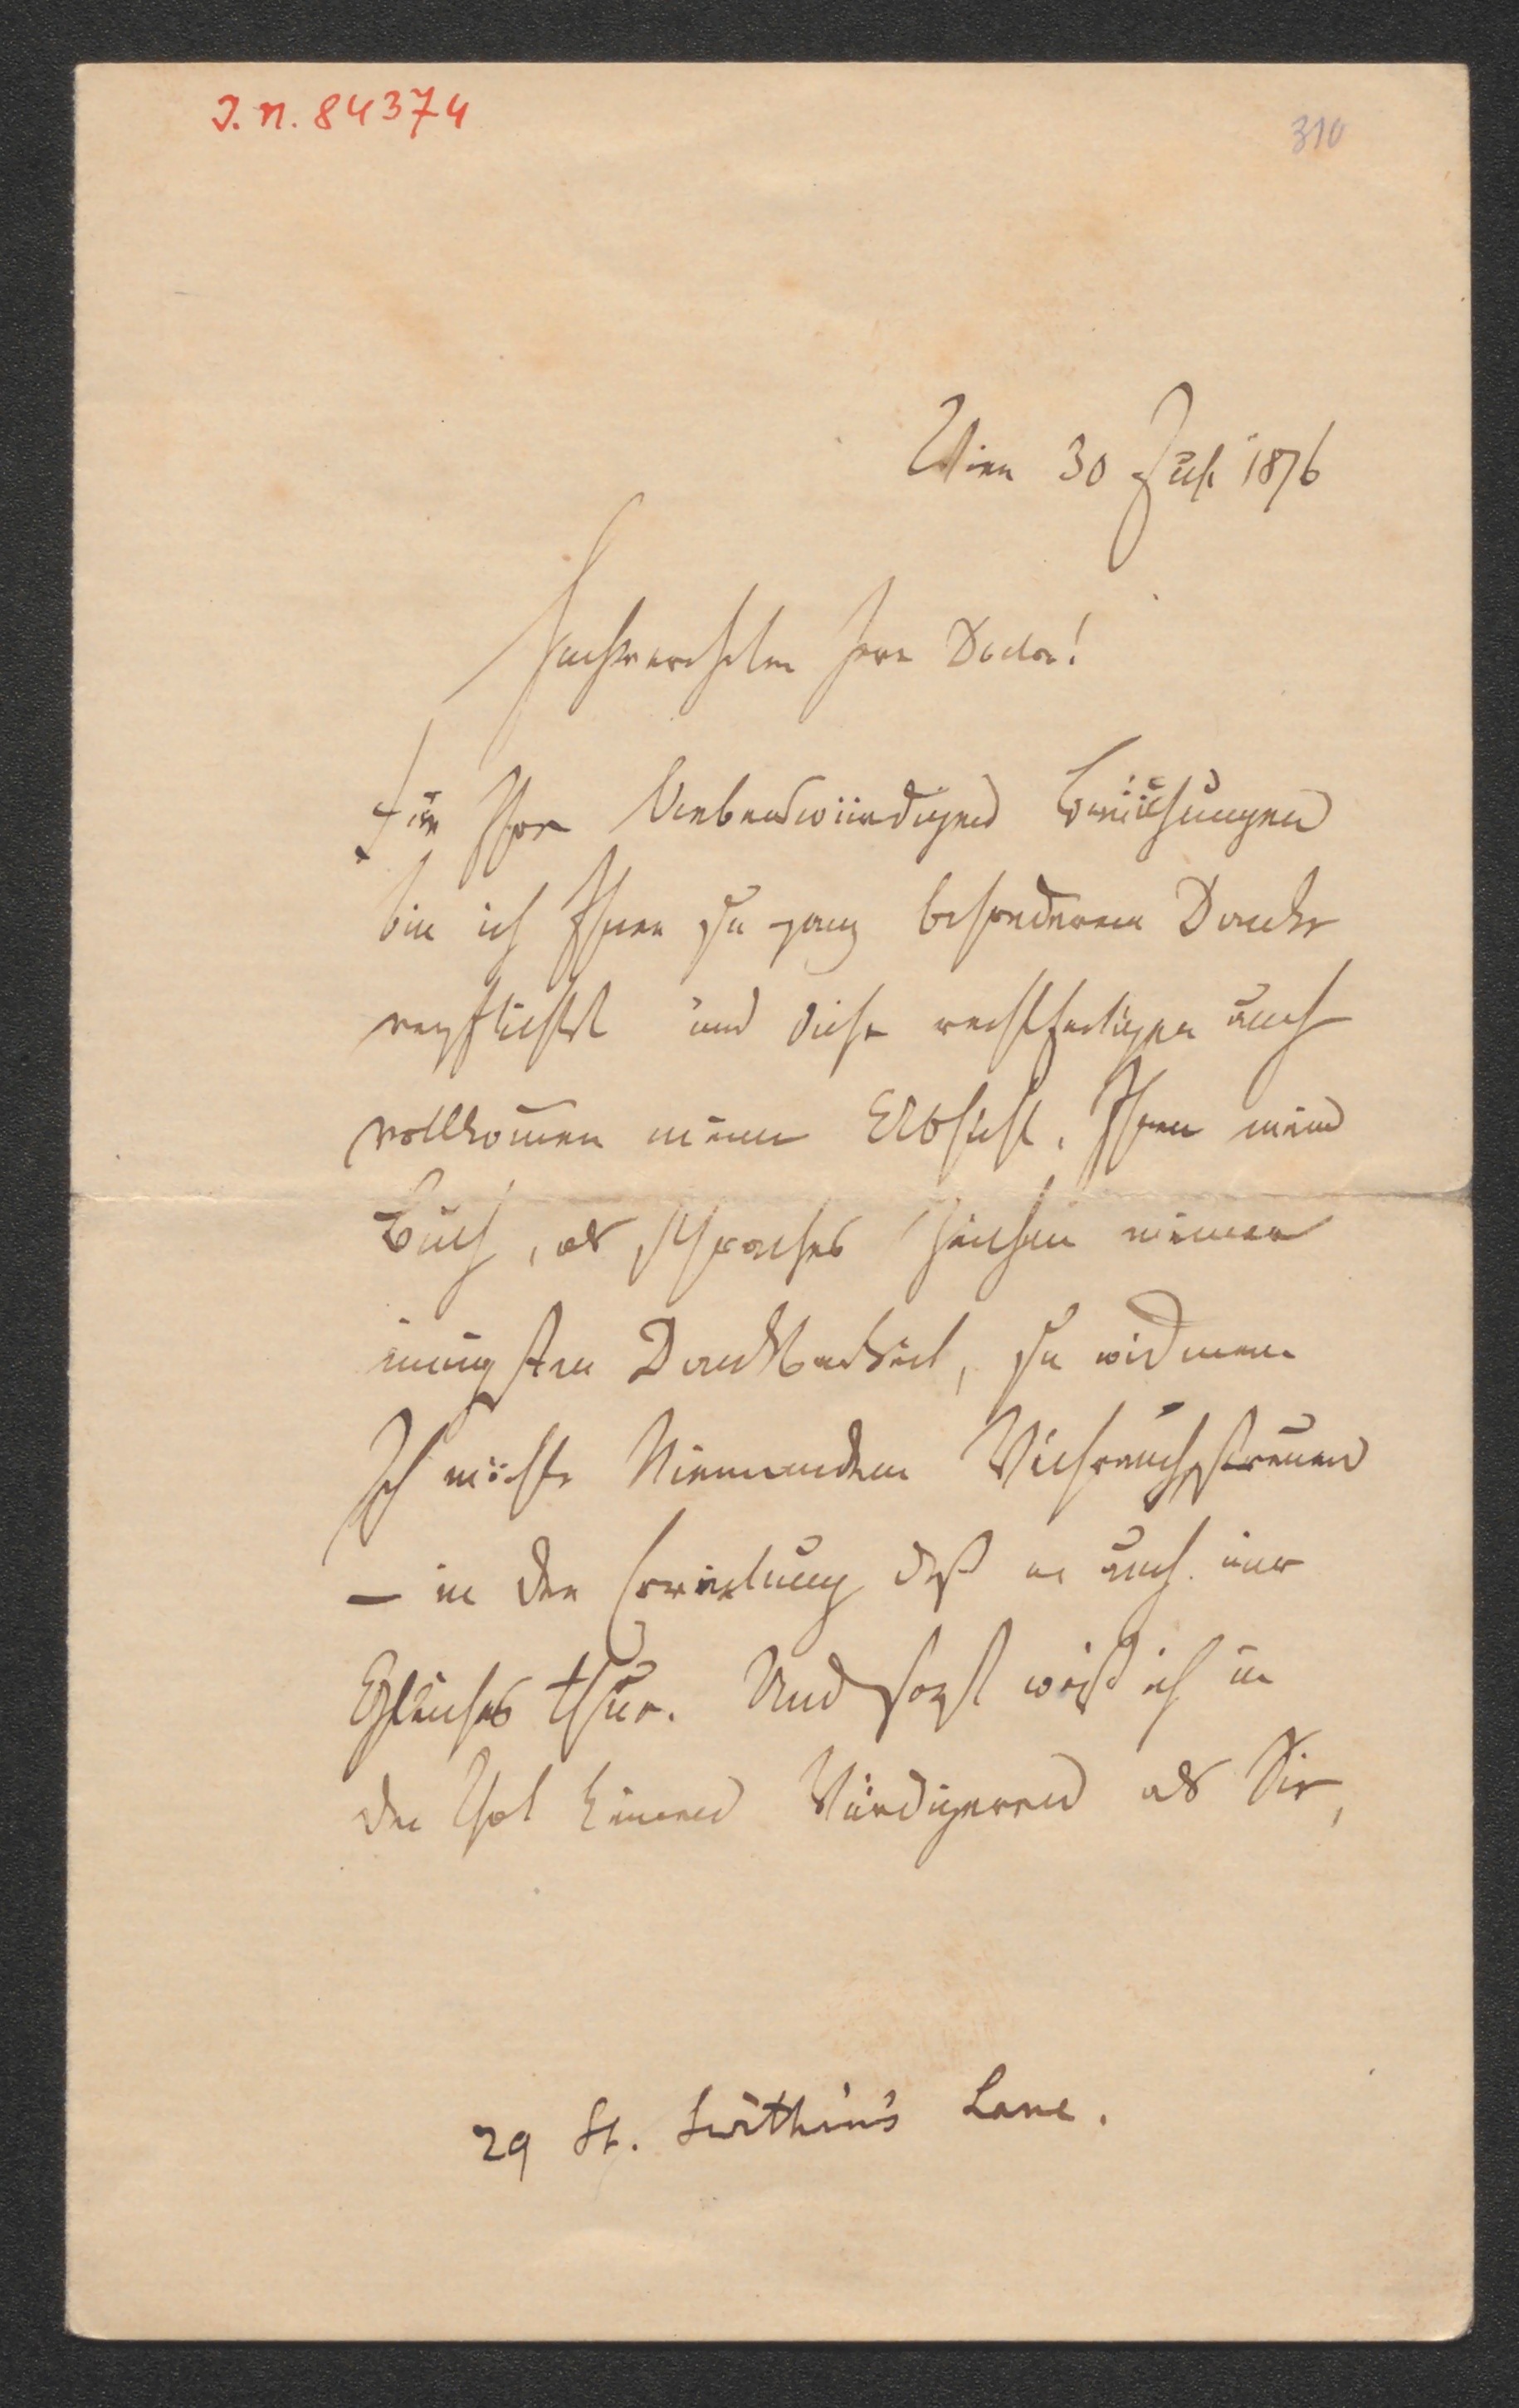 J.N. 84374
310
Wien 30 Juli 1876
Hochverehrter Herr Doctor!
Für Ihre liebenswürdigen Bemühungen
bin ich Ihnen zu ganz besonderem Danke
verpflichtet und diese rechtfertigen auch
vollkom̄en meine Absicht, Ihnen mein
Buch, als schwaches Zeichen meiner
innigsten Dankbarkeit, zu widmen.
Ich möchte Niemandem Weihrauch streuen
– in der Erwartung daß er auch mir
Gleiches thue. Und sonst weiß ich in
der That keinen Würdigeren als Sie,
29 St. Swithin's Lane.